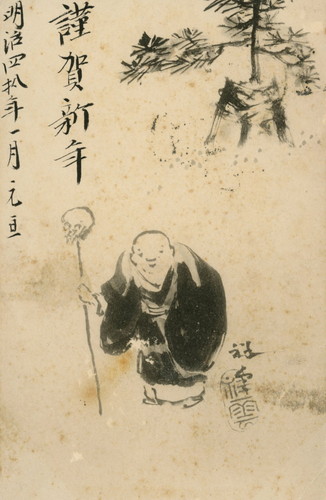 謹賀新年
明治四拾年一月元旦